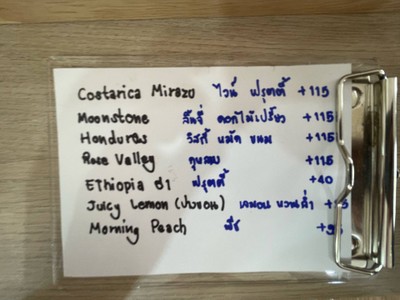 Costarica Mirazu ไวน์ ฟรุตตี้ +115
Moonstone ลิ้นจี่ ดอกไม้เปรี้ยว +115
Honduras วิสกี้ หมัก ขนม +115
Rose Valley กุหลาบ +115
Ethiopia G1 ฟรุตตี้ +40
Juicy Lemon (ปางขอน) เลมอน หวานฉ่ำ
Morning Peach พีช